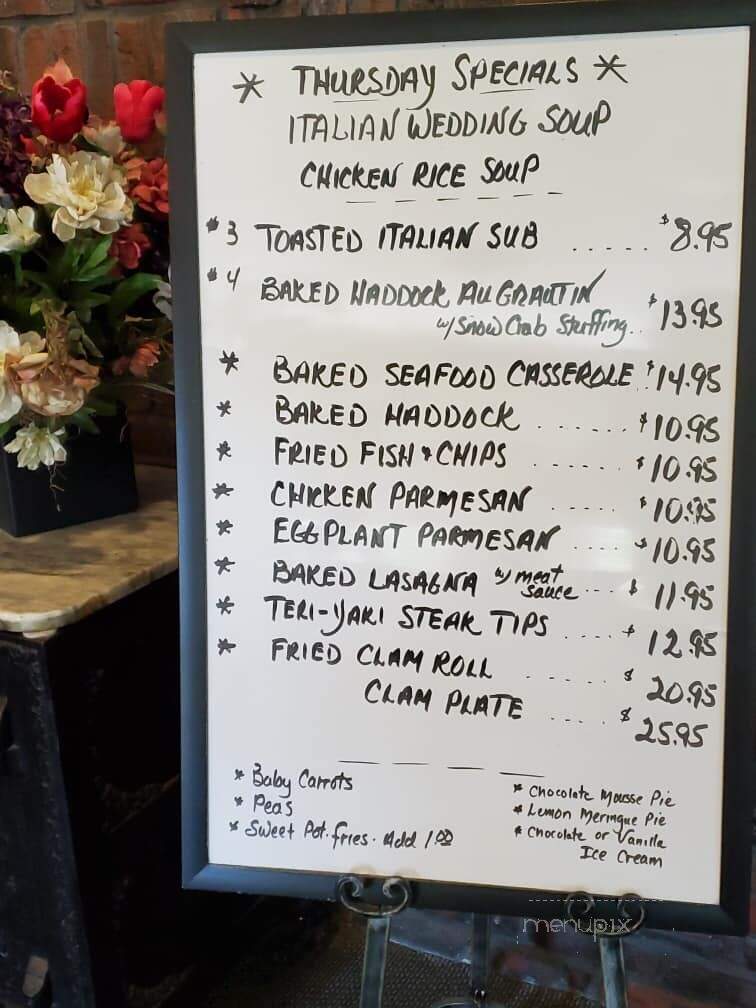 * THURSDAY SPECIALS *
ITALIAN WEDDING SOUP
CHICKEN RICE SOUP
#3 TOASTED ITALIAN SUB ..... $8.95
#4 BAKED HADDOCK AU GRAUTIN
w/ Snow Crab Stuffing.. $13.95
* BAKED SEAFOOD CASSEROLE.. $14.95
* BAKED HADDOCK ....... $10.95
* FRIED FISH & CHIPS ...... $10.95
* CHICKEN PARMESAN ..... $10.95
* EGGPLANT PARMESAN .... $10.95
* BAKED LASAGNA w/ meat sauce ... $11.95
* TERI-YAKI STEAK TIPS .... $12.95
* FRIED CLAM ROLL ..... $20.95
CLAM PLATE .... $25.95
* Baby Carrots
* Peas
* Sweet Pot. fries. Add 1.00
* Chocolate Mousse Pie
* Lemon Meringue Pie
* Chocolate or Vanilla
Ice Cream
menupix